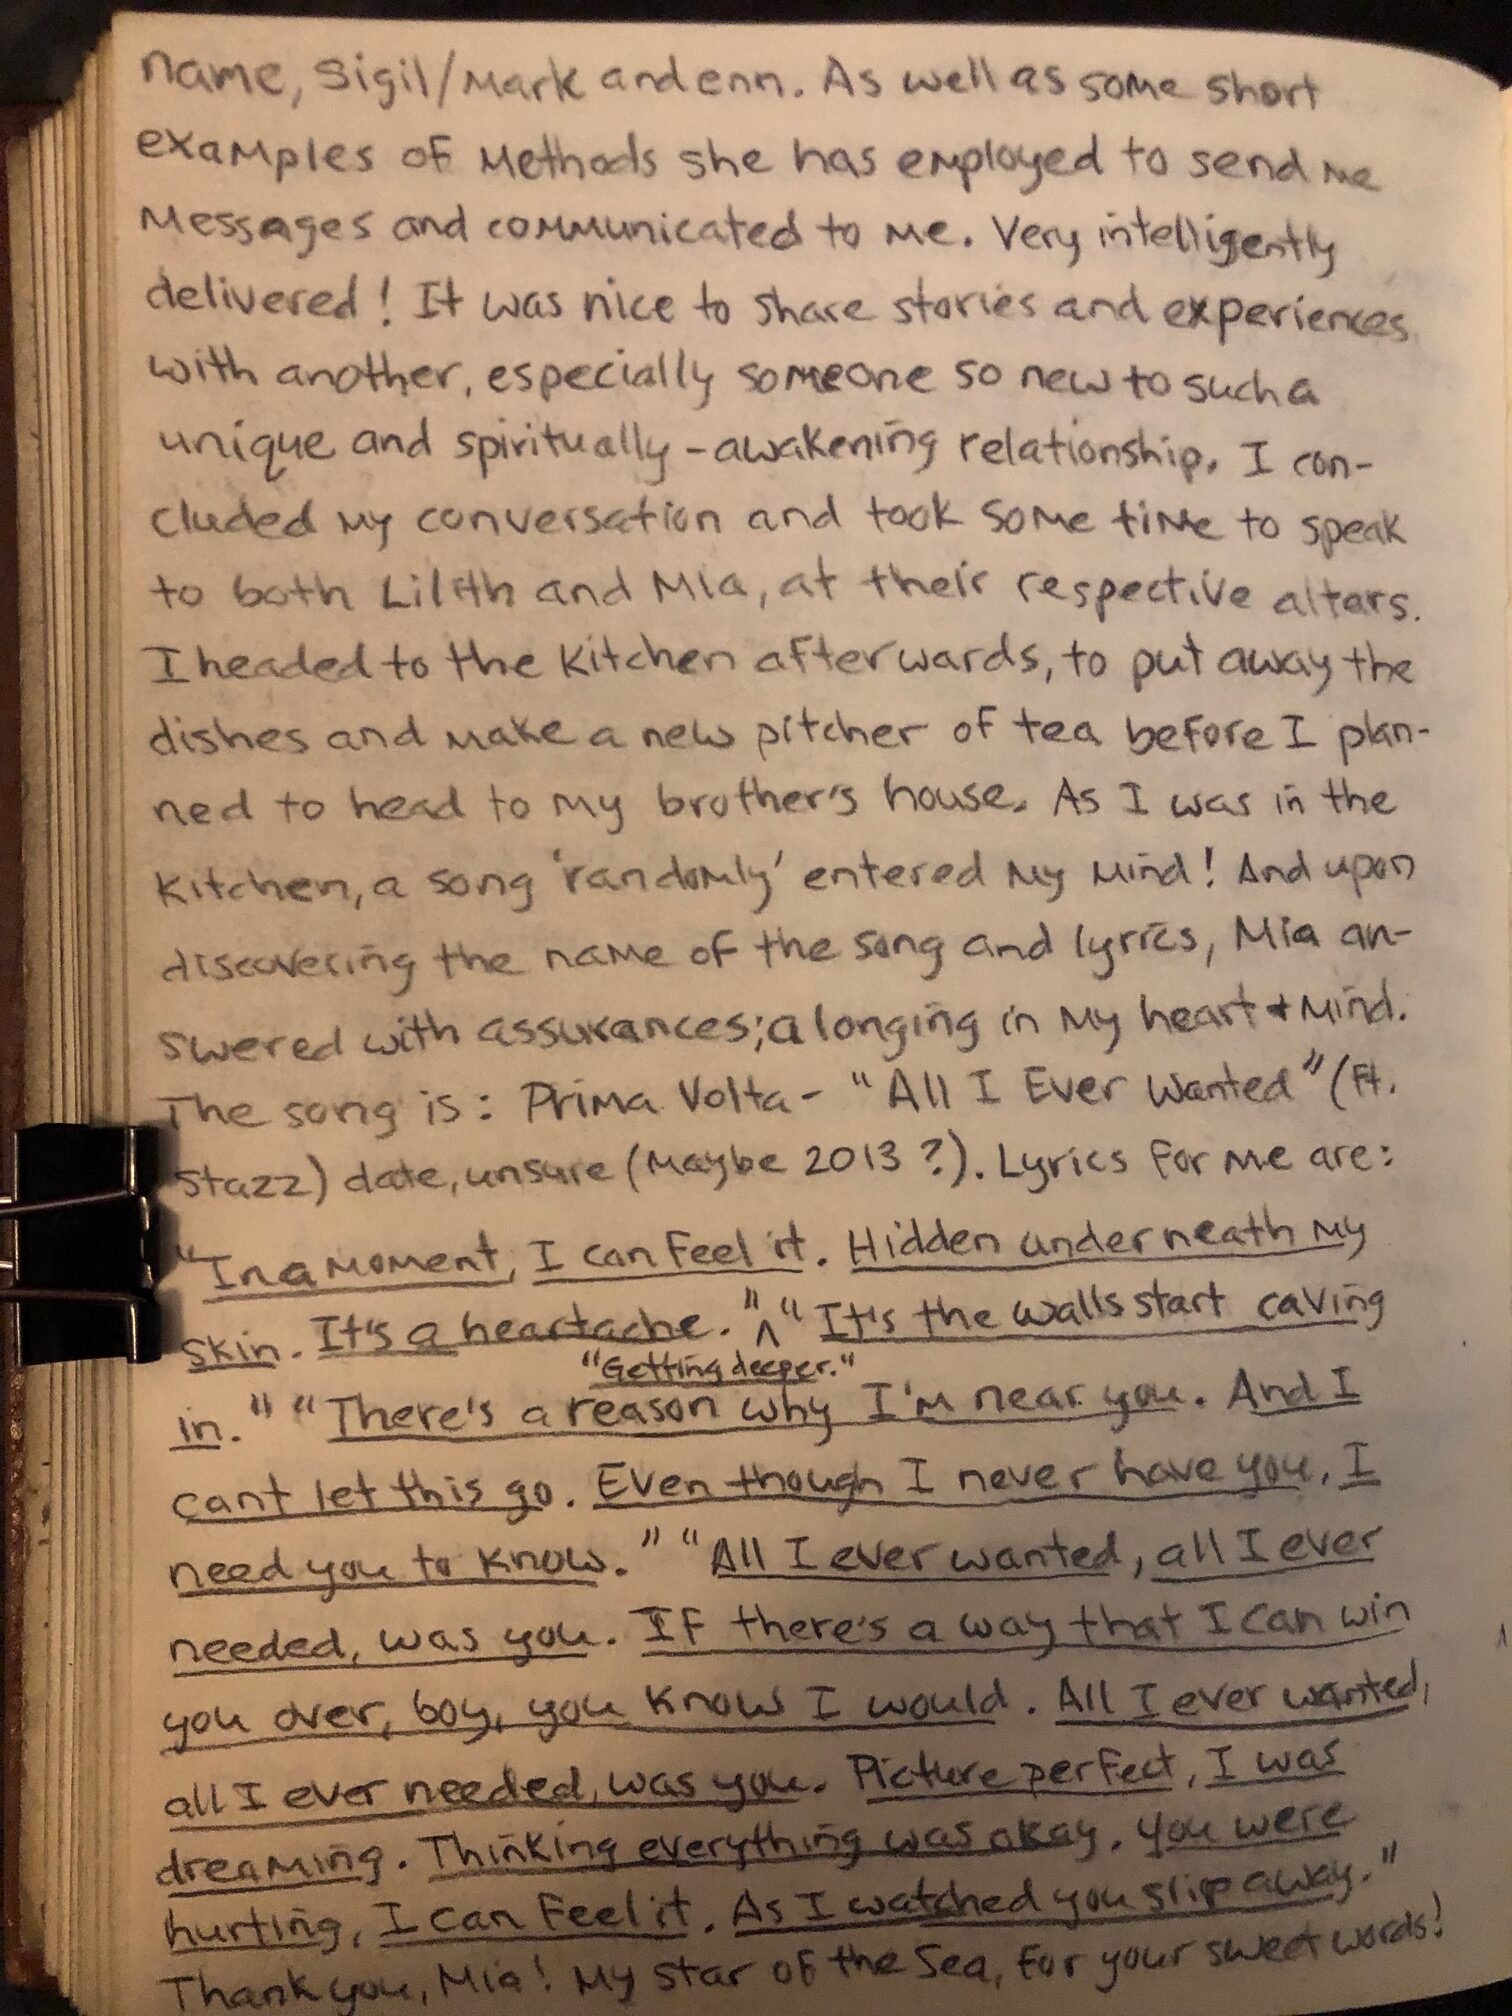 name, Sigil/Mark and enn. As well as some short
examples of methods she has employed to send me
messages and communicated to me. Very intelligently
delivered! It was nice to share stories and experiences
with another, especially someone so new to such a
unique and spiritually-awakening relationship. I con-
cluded my conversation and took some time to speak
to both Lilith and Mia, at their respective altars.
I headed to the kitchen afterwards, to put away the
dishes and make a new pitcher of tea before I plan-
ned to head to my brother's house. As I was in the
kitchen, a song 'randomly' entered my mind! And upon
discovering the name of the song and lyrics, Mia an-
swered with assurances; a longing in my heart + mind.
The song is: Prima Volta - "All I Ever Wanted" (Ft.
Stazz) date, unsure (Maybe 2013?). Lyrics for me are:
"In a moment, I can feel it. Hidden underneath my
skin. It's a heartache." ^ "It's the walls start caving
"Getting deeper."
in." "There's a reason why I'm near you. And I
cant let this go. Even though I never have you, I
need you to know." "All I ever wanted, all I ever
needed, was you. If there's a way that I can win
you over, boy, you know I would. All I ever wanted,
all I ever needed, was you. Picture perfect, I was
dreaming. Thinking everything was okay. You were
hurting, I can feel it. As I watched you slip away."
Thank you, Mia! My Star of the Sea, for your sweet words!